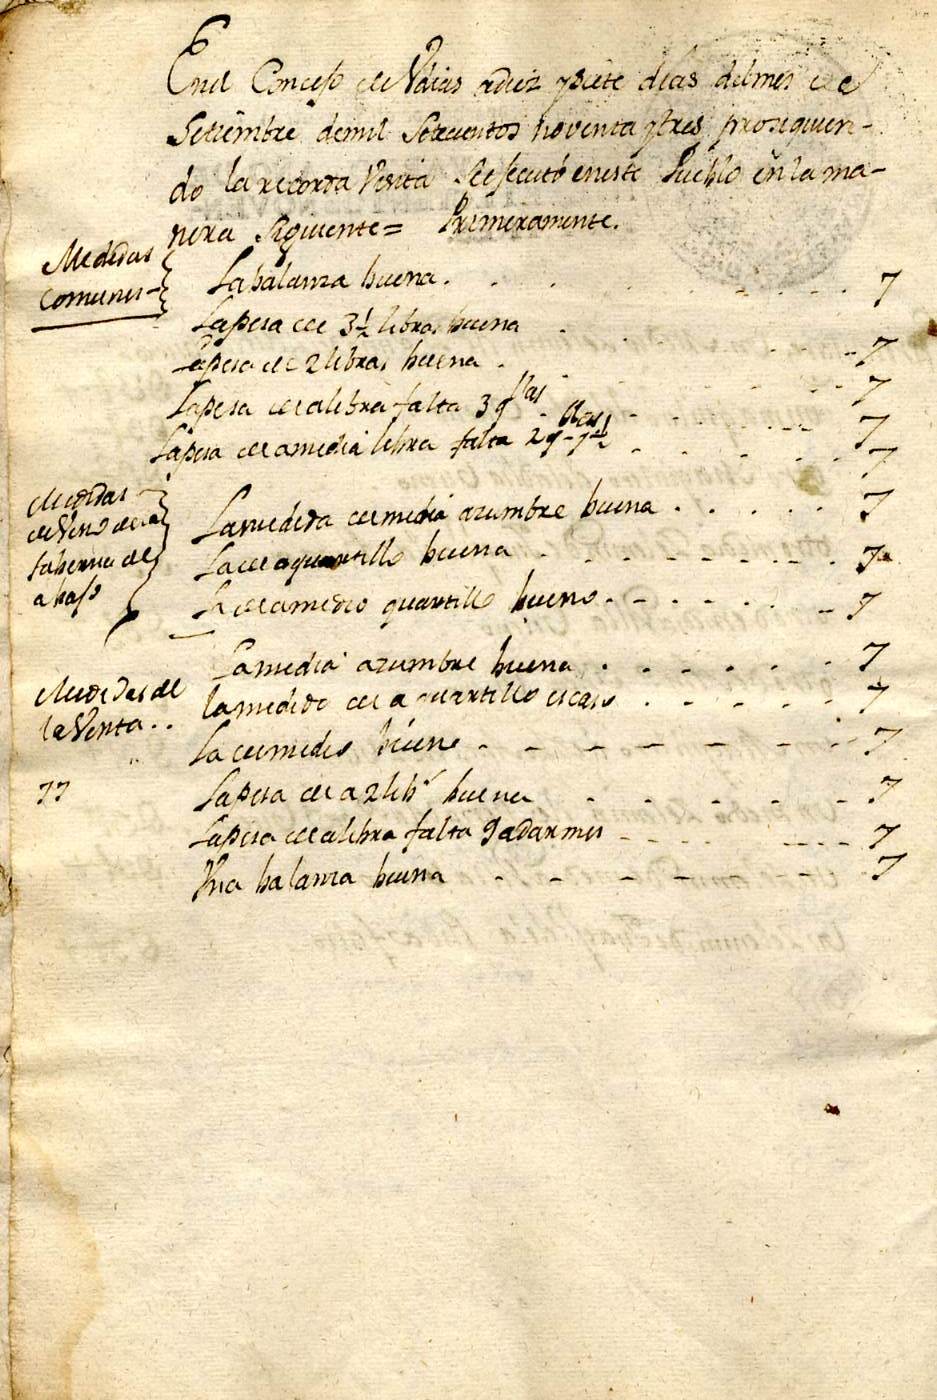 En el Concejo de Vdias a diez y siete dias del mes de
Setiembre de mil Setecientos noventa y tres prosiguien-
do la recorda Visita se ejecutó en este Pueblo en la ma-
nera siguiente= Primeramente.
Medidas
Comunes-
La balanza buena. . . . . . . 7
La pesa de 3½ libras buena . . . . . -7
La pesa de 2 libras buena . . . . . 7
La pesa de a libra falta 3 q.tas . . . . . 7
La pesa de a media libra falta 2 q-y ½ . . . . 7
Medidas
de Vino de la
taberna de
abajo
La medida de media azumbre buena . . . . . 7
La de a quartillo buena . . . . . 7
La de a medio quartillo bueno . . . . . 7
Medidas de
la Venta . .
La media azumbre buena . . . . . 7
la medida de a quartillo escaso . . . . . 7
La de medio bueno . - - - - - - 7
77
La pesa de a 2 lib.s buena . . . . . 7
La pesa de a libra falta 9 adarmes - . . . . 7
Una balanza buena - - - - - 7